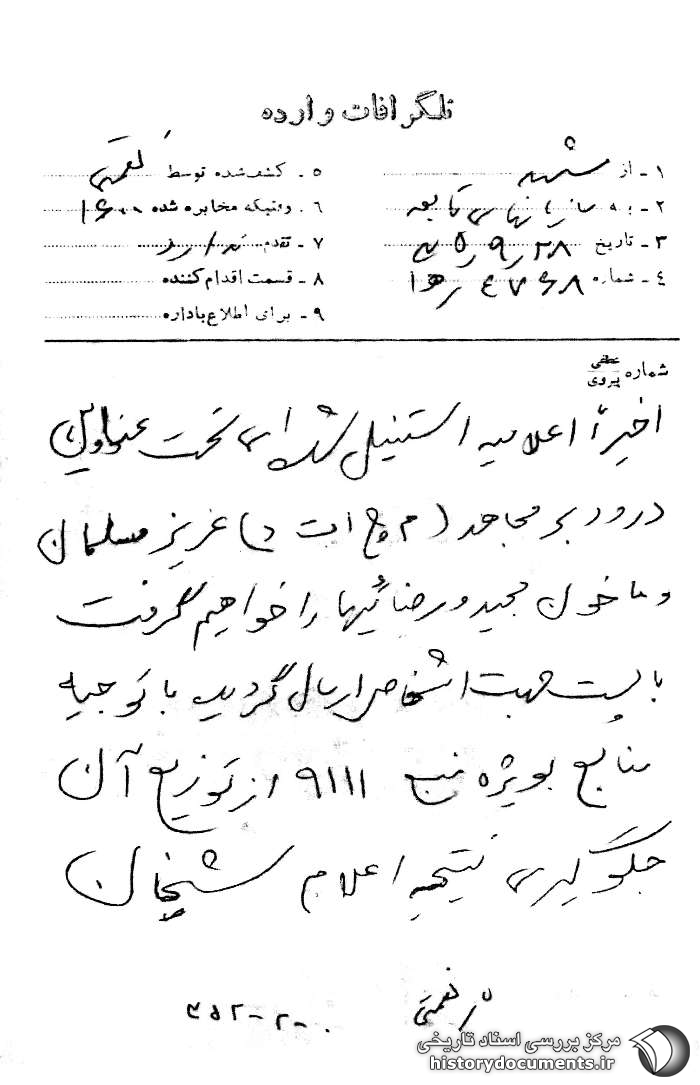 تلگرافات وارده
۱ - از
۲ - به سازمانهای تابعه
۳ - تاریخ ۲۸ / ۹ / ۵
۴ - شماره ۴۷۶۸ / ۵۱
۵ - کشف شده توسط نعمتی
۶ - وقتیکه مخابره شده ۱۶۰۰
۷ - تقدم
۸ - قسمت اقدام کننده
۹ - برای اطلاع باداره
شماره عطفی پیروی
اخیراً اعلامیه استنیل شده ای تحت عناوین
درود بر مجاهد ( م چ ات د ) عزیز مسلمان
و ما خون مجید و رضائیها را خواهیم گرفت
با پست جهت اشخاص ارسال گردیده با توجیه
منابع بویژه منبع ۹۱۱۱ از توزیع آن
جلوگیری نتیجه اعلام
نعمتی
۳۵۲-۲-۰
مرکز بررسی اسناد تاریخی
historydocuments.ir